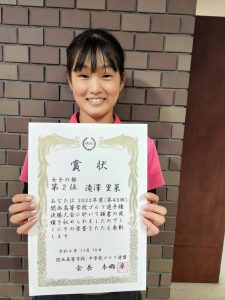 賞状
女子の部
第2位 滝澤 里菜
あなたは2022年度(第43回)
関西高等学校ゴルフ選手権
決勝大会に於いて頭書の成
績を収められましたのでこ
こにその栄誉をたたえ表彰し
ます
令和4年11月10日
関西高等学校・中学校ゴルフ連盟
会長